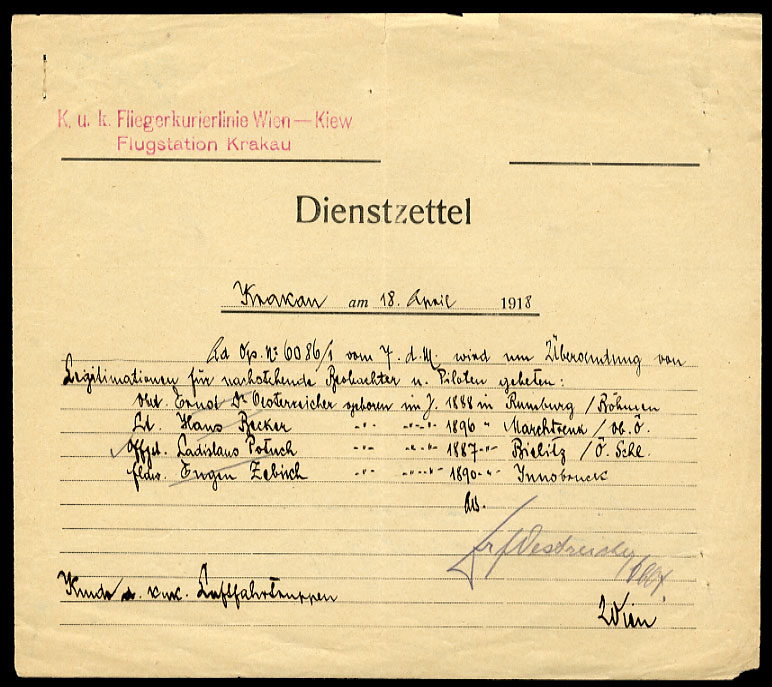 K. u. k. Fliegerkurierlinie Wien — Kiew
Flugstation Krakau
Dienstzettel
Krakau am 18. April 1918
Ad Op. Nº 6086/1 vom 7. d. M. wird um Übersendung von
Legitimationen für nachstehende Beobachter u. Piloten gebeten:
Oblt. Ernst Dr Oesterreicher geboren im J. 1888 in Rumburg / Böhmen
Lt. Hans Becker -"- -"-"- 1896 " Marchtrenk / Ob. Ö.
Offzst. Ladislaus Potuch -"- -"-"- 1887 -"- Bielitz / Ö. Schl.
Eugen Zebisch -"- -"-"- 1890 -"- Innsbruck
Oesterreicher Oblt.
Kmdo d. k.u.k. Luftfahrtruppen
Wien